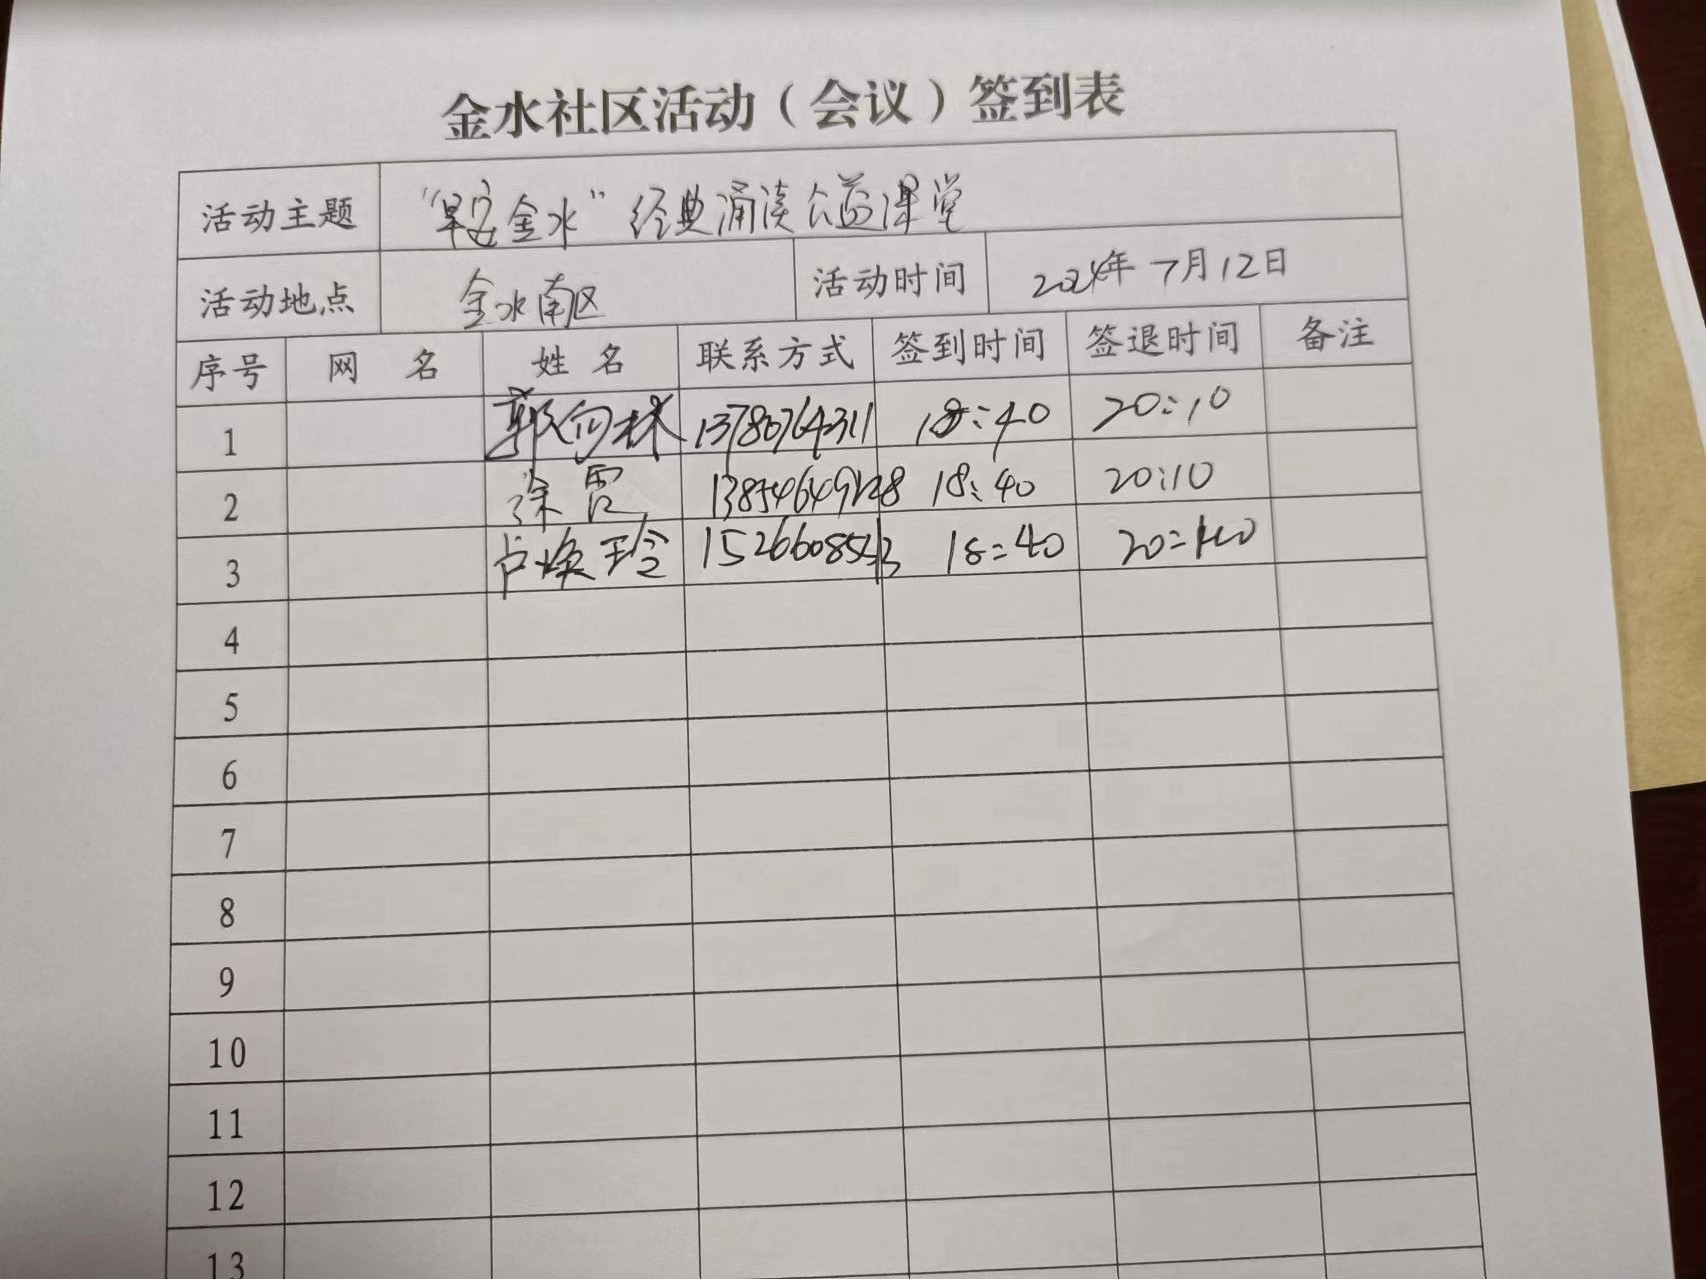 金水社区活动（会议）签到表
活动主题 “早安金水”经典诵读公益课堂
活动地点 金水南区 活动时间 2024年7月12日
序号 网 名 姓 名 联系方式 签到时间 签退时间 备注
1 郭向林 13780764311 18:40 20:10
2 徐霞 18:40 20:10
3 卢焕玲 18:40
4
5
6
7
8
9
10
11
12
13